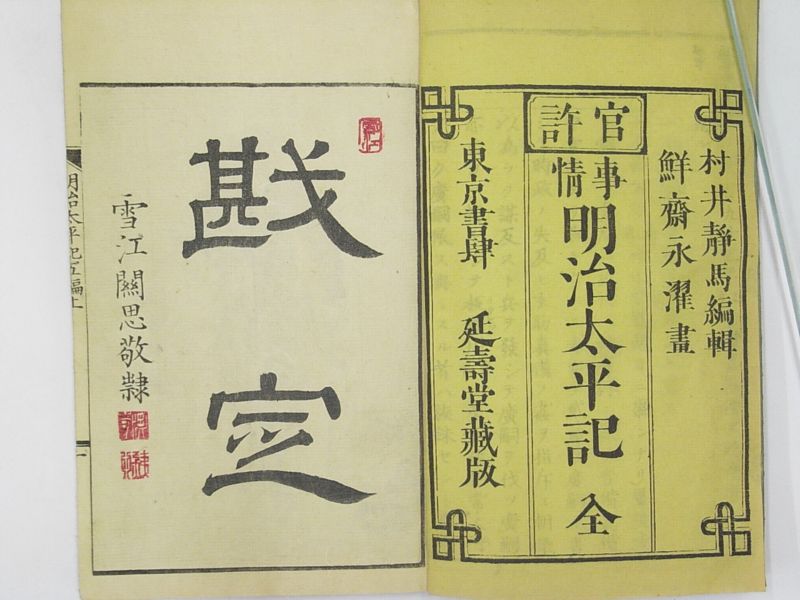 村井靜馬編輯
鮮齋永濯畫
官許
事情
明治太平記 全
東京書肆 延壽堂藏版
戡定
雪江關思敬隸
明治太平記五編上